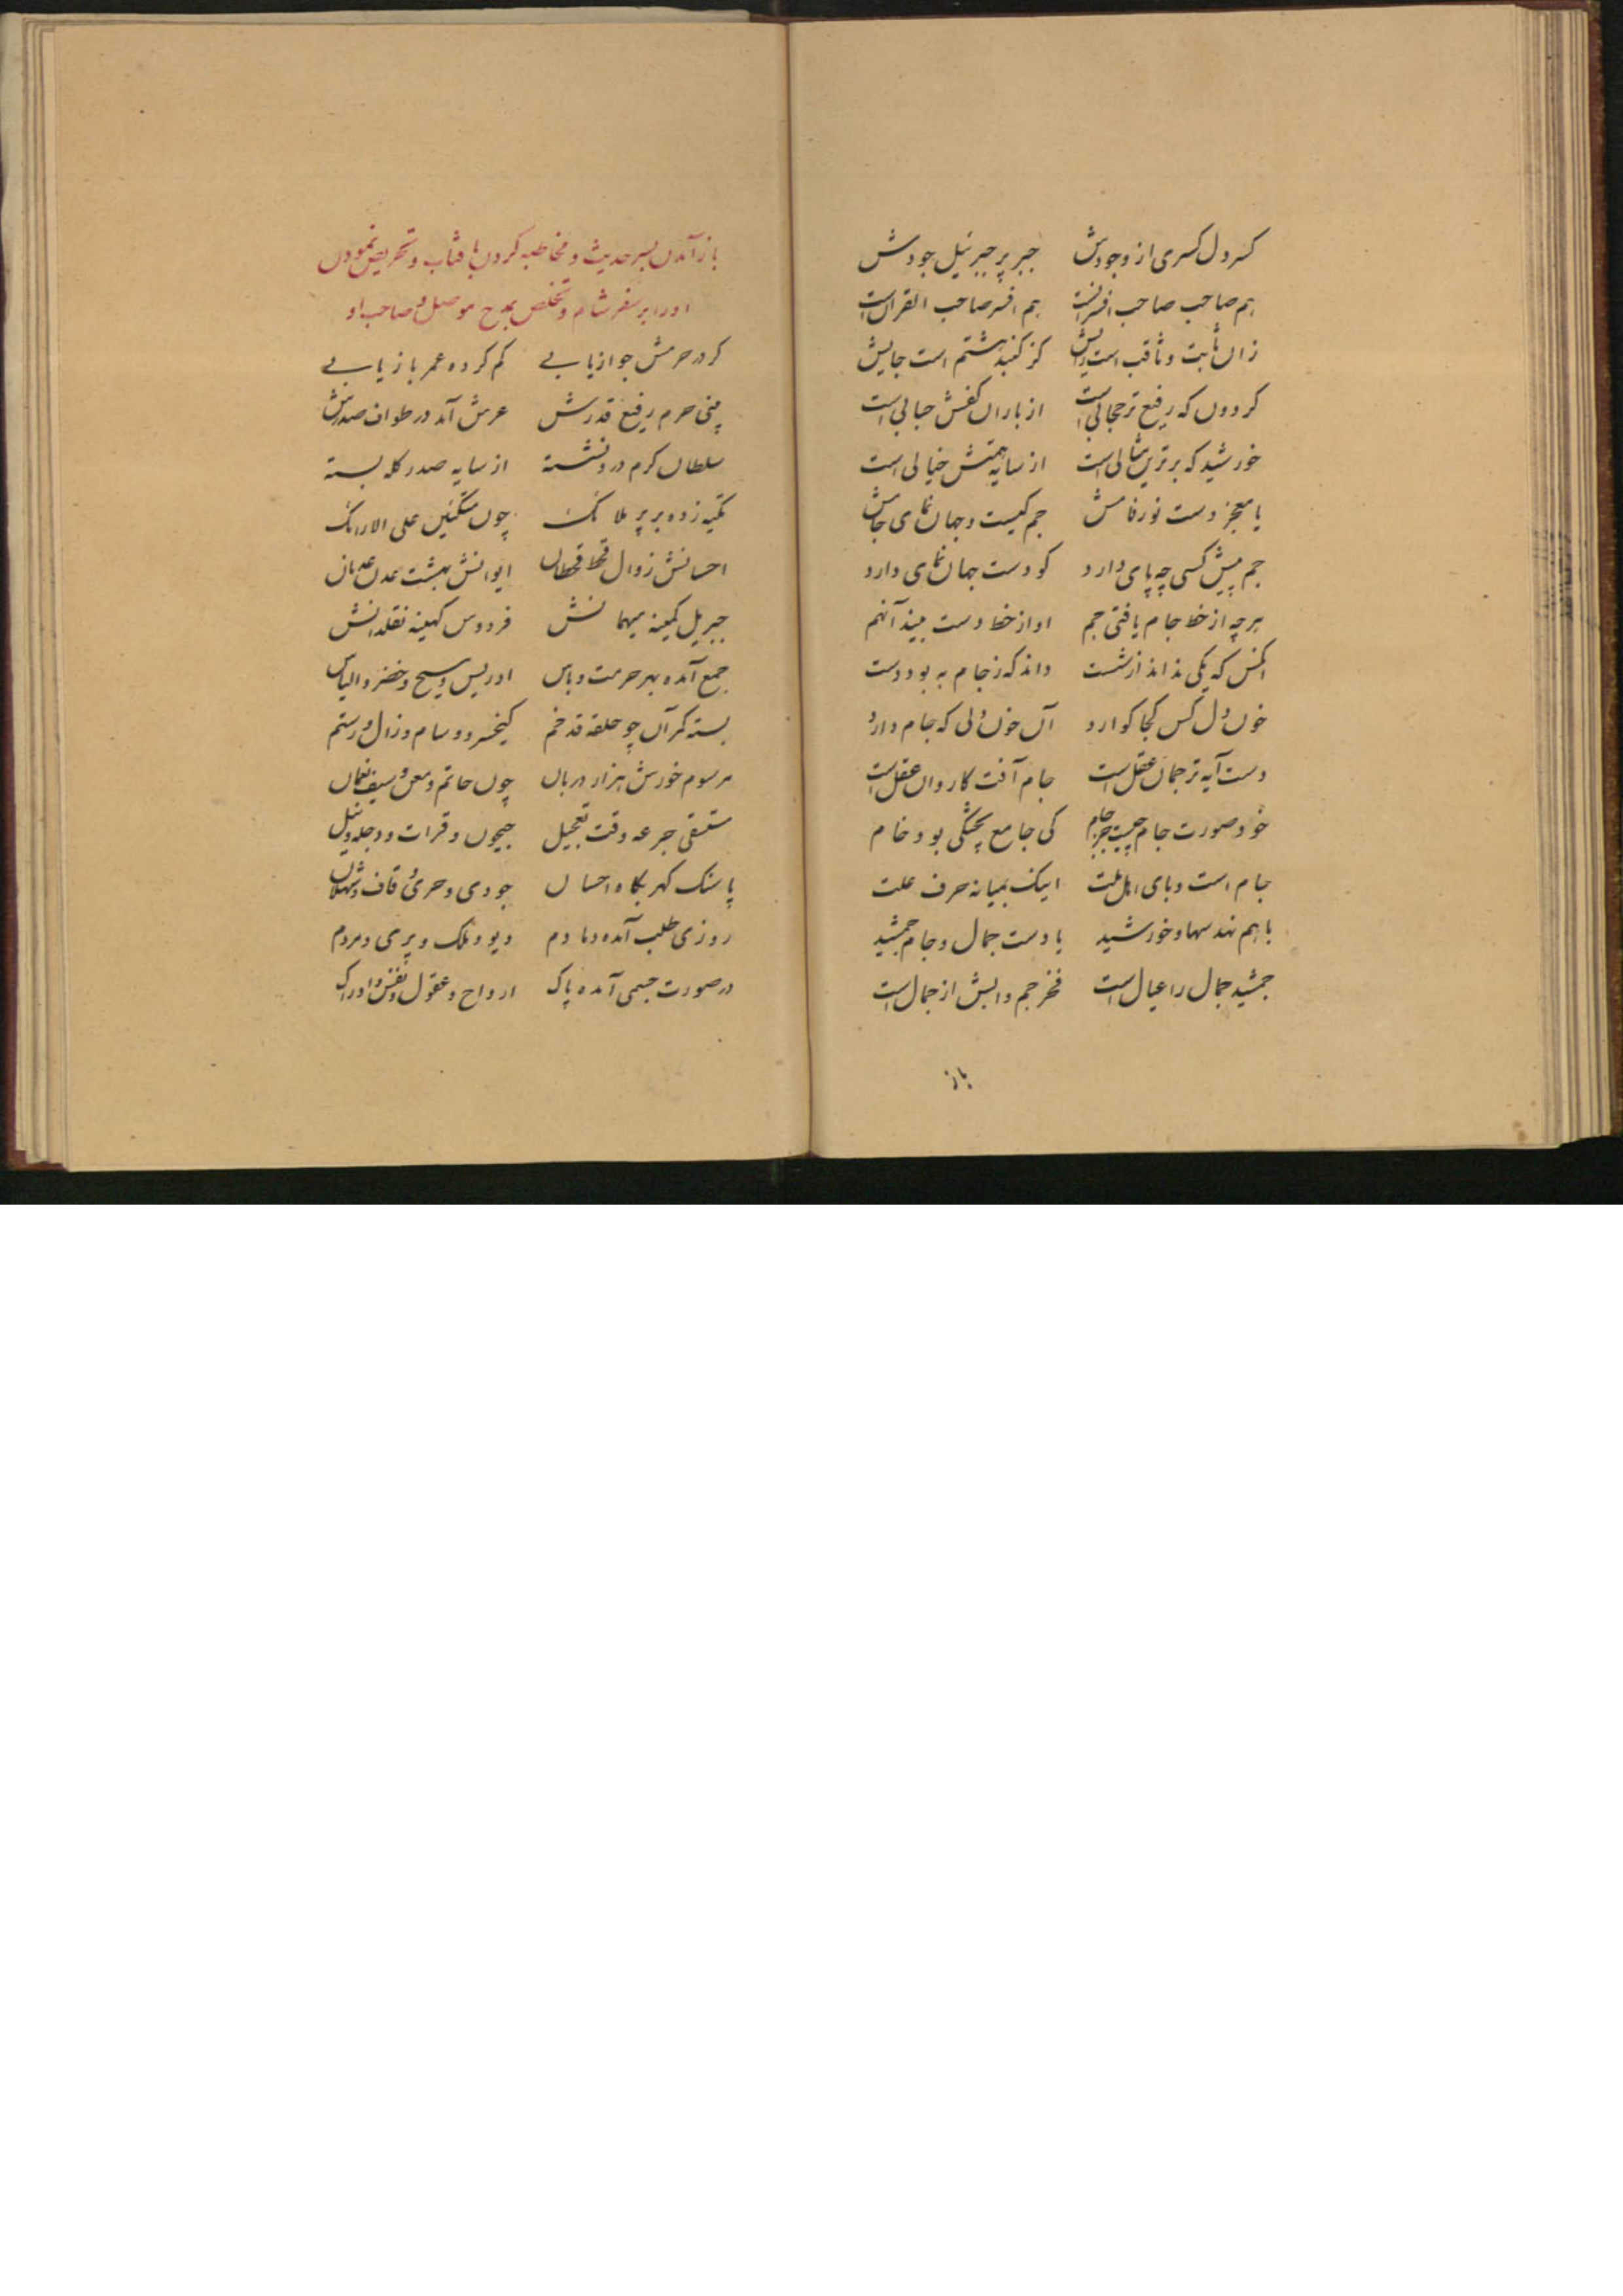 کسر دل کسری از وجودش جبر پر جبرئیل جودش
هم صاحب صاحب افسرانست هم افسر صاحب القرانست
زان ثابت و ثاقب است رایش کز کنبد هشتم است جایش
کردون که رفیع تر حجابی است از باران کفش حبابی است
خورشید که برترین مثالی است از سایه همتش خیالی است
با معجز دست نور فامش جم کیست و جهان نمای جامش
جم پیش کسی چه پای دارد کو دست جهان نمای دارد
هرچه از خط جام یافتی جم او از خط دست بیند آنهم
انکس که یکی نداند از شست داند که ز جام به بود دست
خون دل کس کجا کوارد آن خون دلی که جام دارد
دست آیه ترجمان عقل است جام آفت کاروان عقل است
خود صورت جام چیست جز جام کی جامع پختگی بود خام
جام است وبای اهل ملت اینک بمیانه حرف علت
باهم نهد سها و خورشید با دست جمال و جام جمشید
جمشید جمال را عیال است فخر جم و ابش از جمال است
باز
باز آمدن بسر حدیث و مخاطبه کردن بافتاب و تحریص نمودن
او را بر سفر شام و تخلص بمدح موصل و صاحب او
کر در حرمش جواز یابی کم کرده عمر باز یابی
بینی حرم رفیع قدرش عرش آمد در طواف صدرش
سلطان کرم درو نشسته از سایه صدر کله بسته
تکیه زده بر پر ملائک چون متکئین علی الارائک
احسانش زوال قحط قحطان ایوانش بهشت عدن عدنان
جبریل کمینه میهمانش فردوس کهینه نقلدانش
جمع آمده بهر حرمت و پاس ادریس و مسیح و خضر و الیاس
بسته کمر آن چو حلقه قد خم کیخسرو و سام و زال و رستم
مرسوم خورش هزار دربان چون حاتم و معن و سیف و نعمان
مستسقی جرعه وقت تعجیل جیحون و فرات و دجله و نیل
پاسنک کهر بکاه احسان جودی و حری و قاف و ثهلان
روزی طلب آمده دمادم دیو و ملک و پری و مردم
در صورت جسمی آمده پاک ارواح و عقول و نفس و ادراک